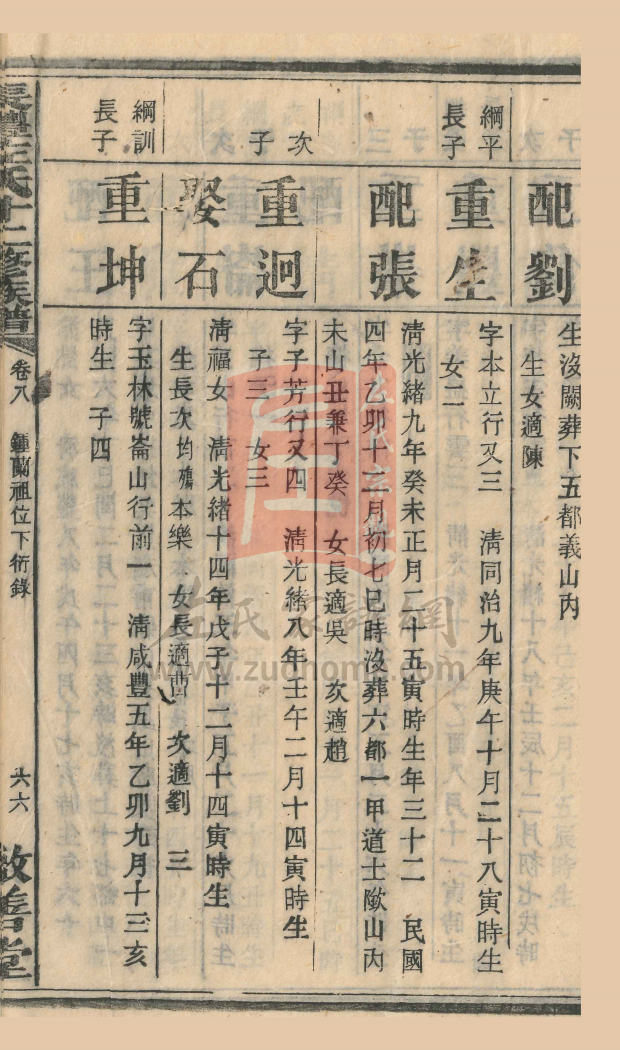 配劉
生沒闕葬下五都義山內
生女適陳
綱平
長子
重生
字本立行又三 清同治九年庚午十月二十八寅時生
女二
配張
清光緒九年癸未正月二十五寅時生年三十二 民國
四年乙卯十二月初七巳時沒葬六都一甲道士歐山內
未山丑兼丁癸 女長適吳 次適趙
次
子
重迥
字子芳行又四 清光緒八年壬午二月十四寅時生
子三 女三
娶石
清福女 清光緒十四年戊子十二月十四寅時生
生長次均殤本樂 女長適曹 次適劉 三
綱訓
長子
重坤
字玉林號崙山行前一 清咸豐五年乙卯九月十三亥
時生 子四
左氏十二修族譜
卷八
鍾蘭祖位下衍錄
六六
敦善堂
左氏家譜網
www.zuohome.com